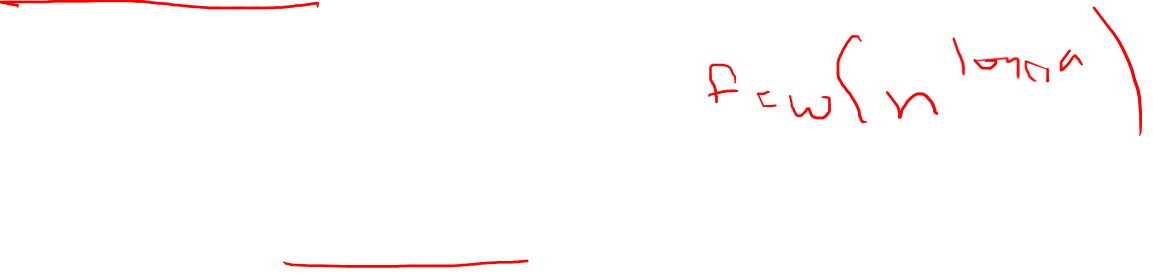 f = ω(n^log_b a)